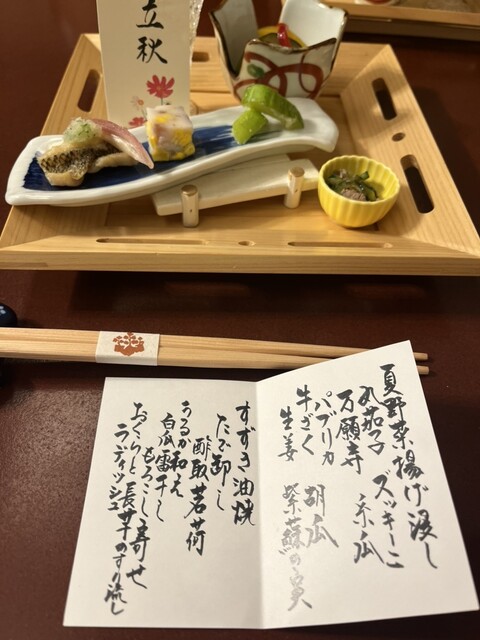 立秋
夏野菜揚げ浸し
丸茄子 ズッキーニ
万願寺 糸瓜
パプリカ
牛ざく 胡瓜
生姜 紫蘇の実
すずき油焼
たで卸し
酢取茗荷
うるか和え
白瓜雷干し
もろこし寄せ
おくらと長芋のすり流し
ラディッシュ